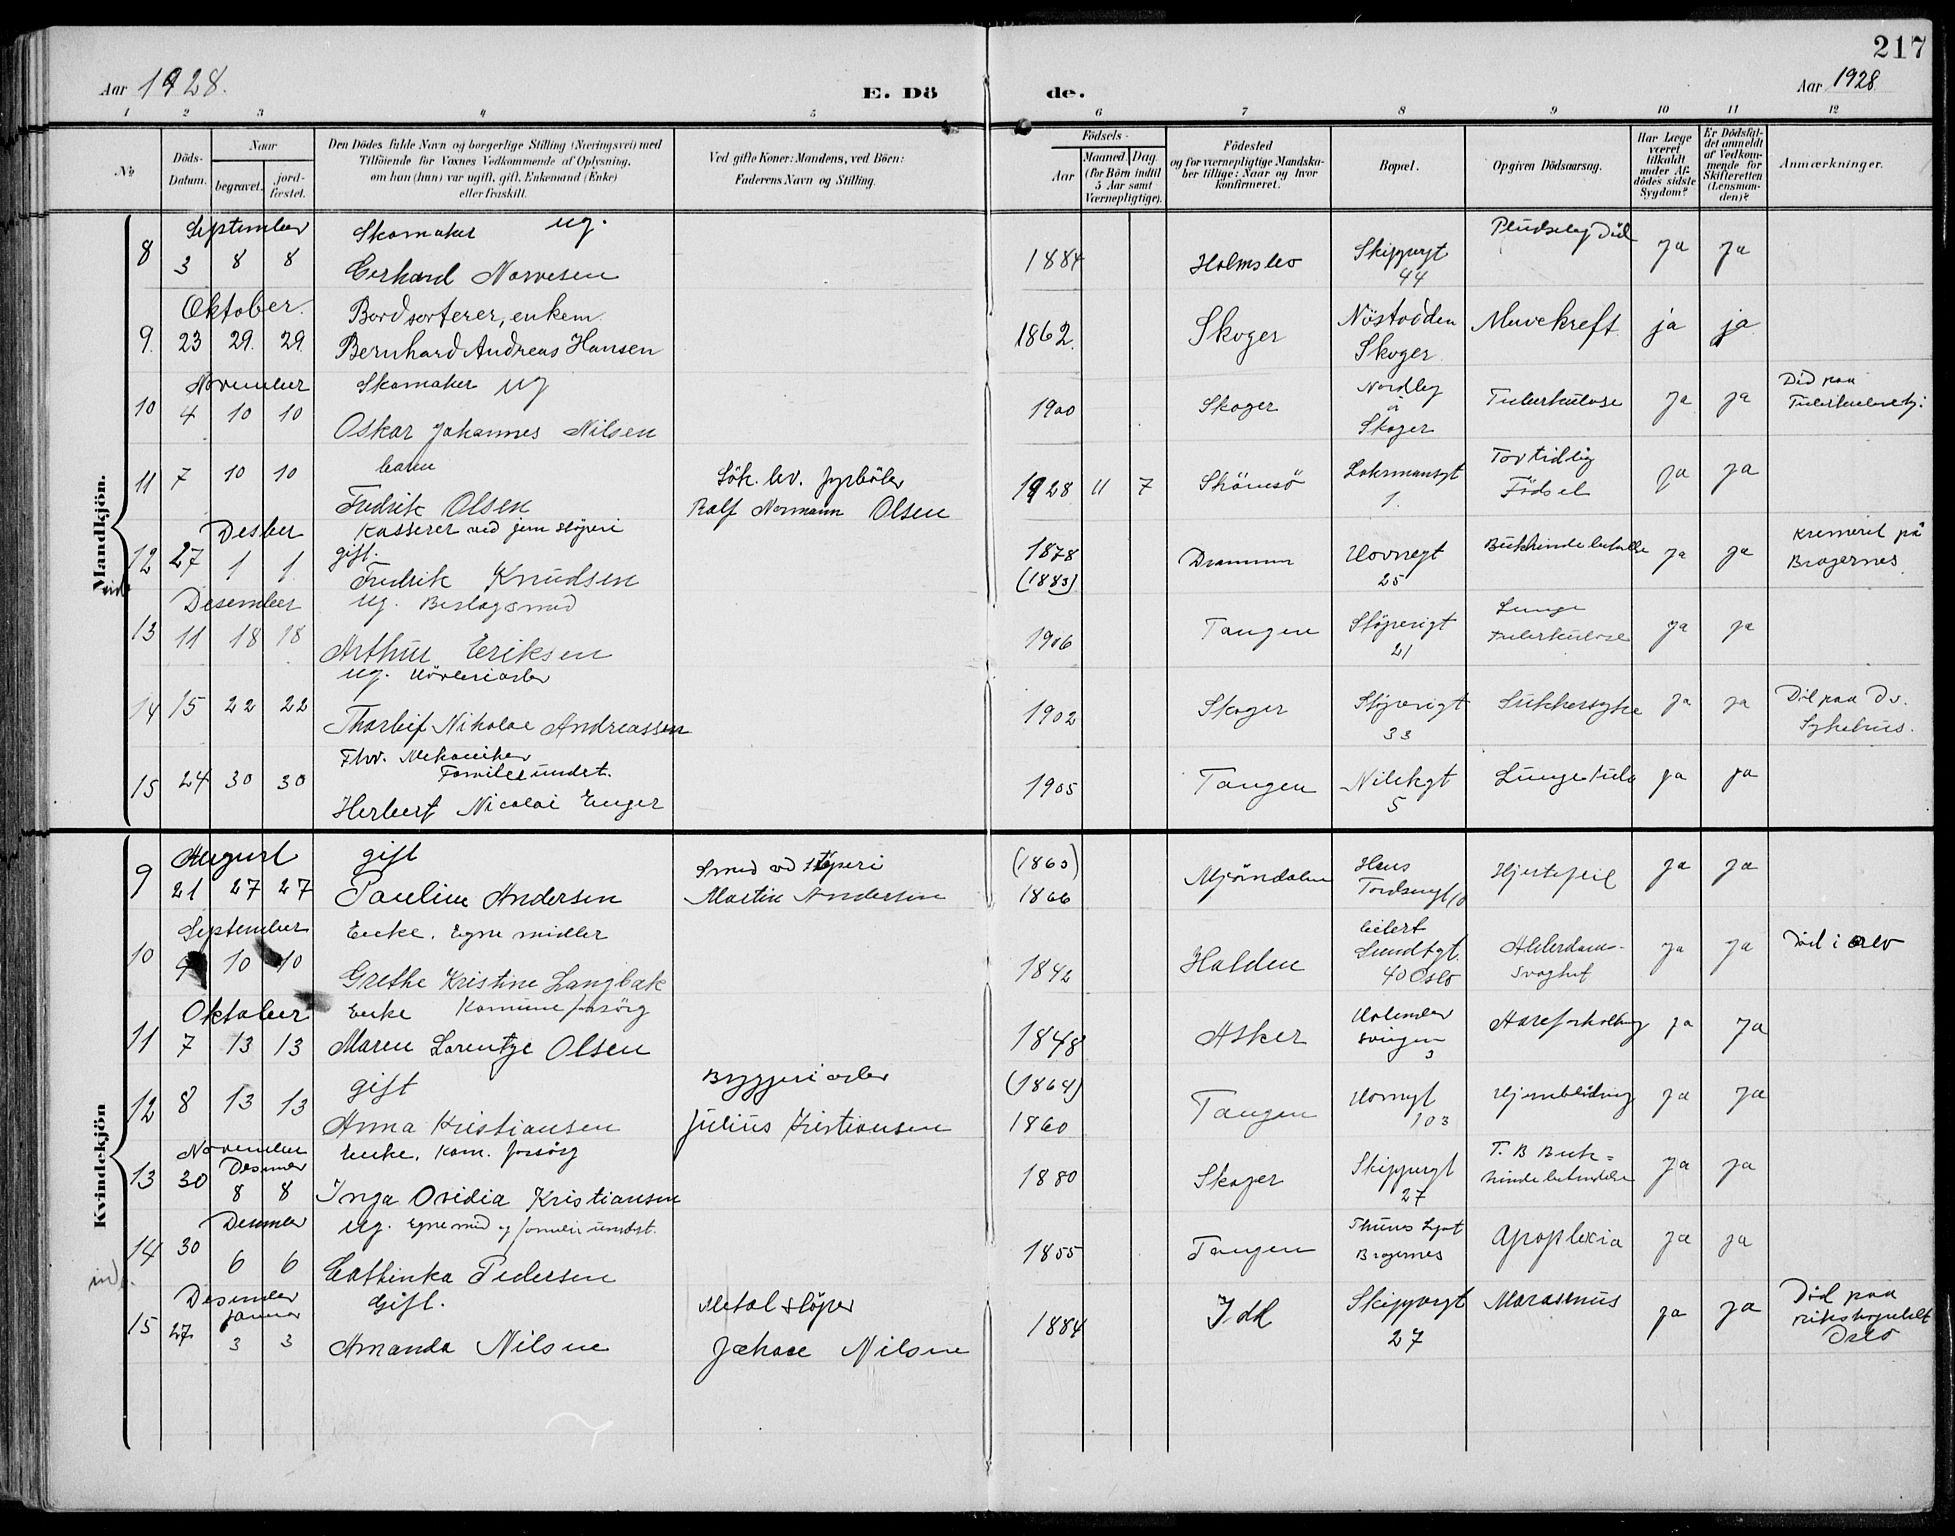 217
Aar 1928.
E. Dö de.
Aar 1928
1 2 3 4 5 6 7 8 9 10 11 12
No
Döds-Datum.
Naar
begravet.
jord-fæstet.
Den Dödes fulde Navn og borgerlige Stilling (Næringsvei) med
Tilföiende for Voxnes Vedkommende af Oplysning,
om han (hun) var ugift, gift, Enkemand (Enke)
eller fraskilt.
Ved gifte Koner: Mandens, ved Börn:
Faderens Navn og Stilling.
Födsels-
Aar
Maaned. Dag.
(for Börn indtil
5 Aar samt
Værnepligtige).
Födested
og for værnepligtige Mandska-
ber tillige: Naar og hvor
konfirmeret.
Bopæl.
Opgiven Dödsaarsag.
Har Læge
været
tilkaldt
under Af-
dödes sidste
Sygdom?
Er Dödsfal-
det anmeldt
af Vedkom-
mende for
Skifteretten
(Lensman-
den)?
Anmærkninger.
Mandkjön.
September Skomaker ug. Pludselig Död
8 3 8 8 Gerhard Norvesen 1884 Holmsbo Skippergt 44 ja ja
Oktober. Bordsorterer, enkem.
9. 23 29. 29. Bernhard Andreas Hansen 1862. Skoger Nöstodden Skoger Mavekreft ja ja
November Skomaker ug
10 4 10 10 Oskar Johannes Nilsen 1900 Skoger Nordby i Skoger Tuberkulose ja ja Död paa
barn
11 7 10 10 Fredrik Olsen Rolf Normann Olsen 1928 11 7 1. For tidlig Födsel ja ja
Desber Kasserer ved jern stöperi
12 27 1 1 gift. Fredrik Knudsen 1878 (1883) Drammen Havnegt 25 ja ja Kremeret på Bragernes
Desember ug. Beslagsmed
13 11 18 18 Arthur Eriksen 1906 Tangen Stöperigt 21 Lunge Tuberkulose ja ja
ug. Hövleriarb
14 15 22 22 Thorleif Nikolae Andreassen 1902 Skoger Stöperigt 33 Sukkersyke ja ja Död paa Dr. Sykehus.
Fhv. Mekaniker
Familieunderst.
15 24 30 30 Herbert Nicolai Enger 1905 Tangen 5 Lunge tub ja ja
Kvindekjön
August gift Smed ved stöperi (1865)
9 21 27 27 Pauline Andersen Martin Andersen 1866 Mjöndalen Hans Tordsensgt 10 Hjertefeil ja ja
September Enke. Egne midler
10 10 10 Grethe Kristine Langbak 1842 Halden Eilert Sundtgt. 40 Oslo Alderdoms-svaghet ja ja Död i Oslo
Oktober Enke Komune forsörg
11 7 13 13 Maren Lorentze Olsen 1848 Asker svingen 3 Aareforkalkning ja ja
gift Byggeriarb (1864)
12 8 13 13 Anna Kristiansen Julius Kristiansen 1860 Tangen Havnegt 103 Hjerneblödning ja ja
November Desember Enke. Kom. forsörg
13 30 8 8 Inga Ovidia Kristiansen 1880 Skoger Skippergt 27 T. B Buk-hindebetendelse ja ja
Desember Ug. Egne mid og familie underst.
14 30 6 6 Cathinka Pedersen 1855 Tangen Thunes Legat Bragernes Apoplexia ja ja
Desember Januar Gift. Metal stöper
15 27 3 3 Amanda Nilsen Nilsen 1884 Idd Skippergt 27 Marasmus ja ja Död paa rikshospitalet Oslo